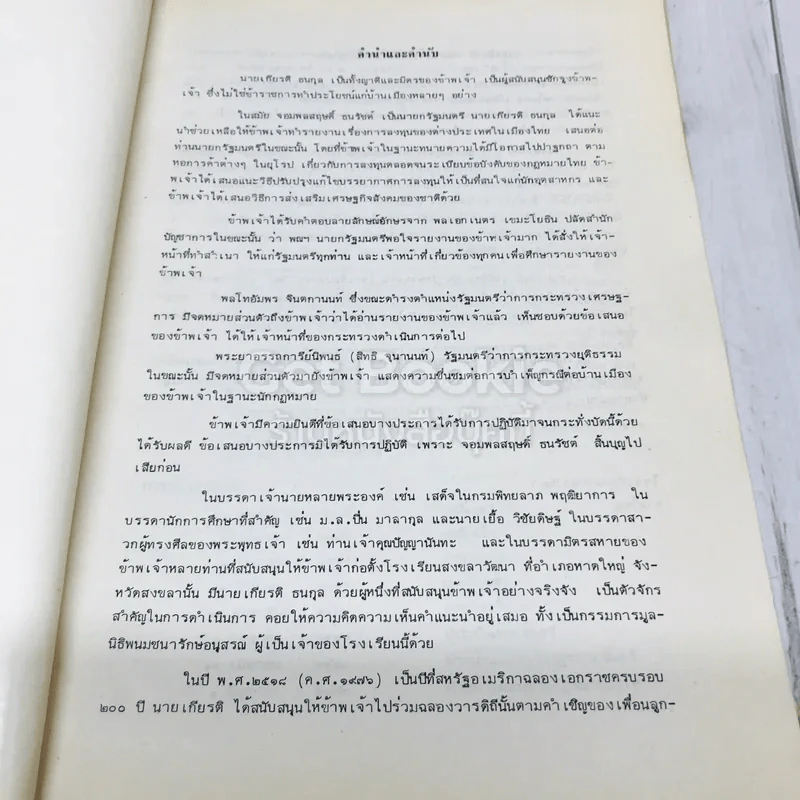 คำนำและคำนับ
นายเกียรติ ธนกุล เป็นทั้งญาติและมิตรของข้าพเจ้า เป็นผู้สนับสนุนชักจูงข้าพ-
เจ้า ซึ่งไม่ใช่ข้าราชการทำประโยชน์แก่บ้านเมืองหลายๆ อย่าง
ในสมัย จอมพลสฤษดิ์ ธนรัชต์ เป็นนายกรัฐมนตรี นายเกียรติ ธนกุล ได้แนะ
นำช่วยเหลือให้ข้าพเจ้าทำรายงานเรื่องการลงทุนของต่างประเทศในเมืองไทย เสนอต่อ
ท่านนายกรัฐมนตรีในขณะนั้น โดยที่ข้าพเจ้าในฐานะทนายความได้มีโอกาสไปปาฐกถา ตาม
หอการค้าต่างๆ ในยุโรป เกี่ยวกับการลงทุนตลอดจนระเบียบข้อบังคับของกฎหมายไทย ข้า-
พเจ้าได้เสนอแนะวิธีปรับปรุงแก้ไขบรรยากาศการลงทุนให้เป็นที่สนใจแก่นักอุตสาหกร และ
ข้าพเจ้าได้เสนอวิธีการส่งเสริมเศรษฐกิจสังคมของชาติด้วย
ข้าพเจ้าได้รับคำตอบลายลักษณ์อักษรจาก พลเอกเนตร เขมะโยธิน ปลัดสำนัก
บัญชาการในขณะนั้น ว่า พณฯ นายกรัฐมนตรีพอใจรายงานของข้าพเจ้ามาก ได้สั่งให้เจ้า-
หน้าที่ทำสำเนา ให้แก่รัฐมนตรีทุกท่าน และเจ้าหน้าที่เกี่ยวข้องทุกคนเพื่อศึกษารายงานของ
ข้าพเจ้า
พลโทอัมพร จินตกานนท์ ซึ่งขณะดำรงตำแหน่งรัฐมนตรีว่าการกระทรวงเศรษฐ-
การ มีจดหมายส่วนตัวถึงข้าพเจ้าว่าได้อ่านรายงานของข้าพเจ้าแล้ว เห็นชอบด้วยข้อเสนอ
ของข้าพเจ้า ได้ให้เจ้าหน้าที่ของกระทรวงดำเนินการต่อไป
พระยาอรรถการีย์นิพนธ์ (สิทธิ จุนานนท์) รัฐมนตรีว่าการกระทรวงยุติธรรม
ในขณะนั้น มีจดหมายส่วนตัวมายังข้าพเจ้า แสดงความชื่นชมต่อการบำเพ็ญกรณีต่อบ้านเมือง
ของข้าพเจ้าในฐานะนักกฎหมาย
ข้าพเจ้ามีความยินดีที่ข้อเสนอบางประการได้รับการปฏิบัติมาจนกระทั่งบัดนี้ด้วย
ได้รับผลดี ข้อเสนอบางประการมิได้รับการปฏิบัติ เพราะ จอมพลสฤษดิ์ ธนรัชต์ สิ้นบุญไป
เสียก่อน
ในบรรดาเจ้านายหลายพระองค์ เช่น เสด็จในกรมพิทยลาภ พฤฒิยาการ ใน
บรรดานักการศึกษาที่สำคัญ เช่น ม.ล.ปิ่น มาลากุล และนายเยื้อ วิชัยดิษฐ์ ในบรรดาสา-
วกผู้ทรงศีลของพระพุทธเจ้า เช่น ท่านเจ้าคุณปัญญานันทะ และในบรรดามิตรสหายของ
ข้าพเจ้าหลายท่านที่สนับสนุนให้ข้าพเจ้าก่อตั้งโรงเรียนสงขลาวัฒนา ที่อำเภอหาดใหญ่ จัง-
หวัดสงขลานั้น มีนายเกียรติ ธนกุล ด้วยผู้หนึ่งที่สนับสนุนข้าพเจ้าอย่างจริงจัง เป็นตัวจักร
สำคัญในการดำเนินการ คอยให้ความคิดความเห็นคำแนะนำอยู่เสมอ ทั้งเป็นกรรมการมูล-
นิธิพนมชนารักษ์อนุสรณ์ ผู้เป็นเจ้าของโรงเรียนนี้ด้วย
ในปี พ.ศ.๒๕๑๘ (ค.ศ.๑๙๗๖) เป็นปีที่สหรัฐอเมริกาฉลองเอกราชครบรอบ
๒๐๐ ปี นายเกียรติ ได้สนับสนุนให้ข้าพเจ้าไปร่วมฉลองวารดิถีนั้นตามคำเชิญของเพื่อนลูก-
Get Bookie
ร้านหนังสือบุ๊คกี้